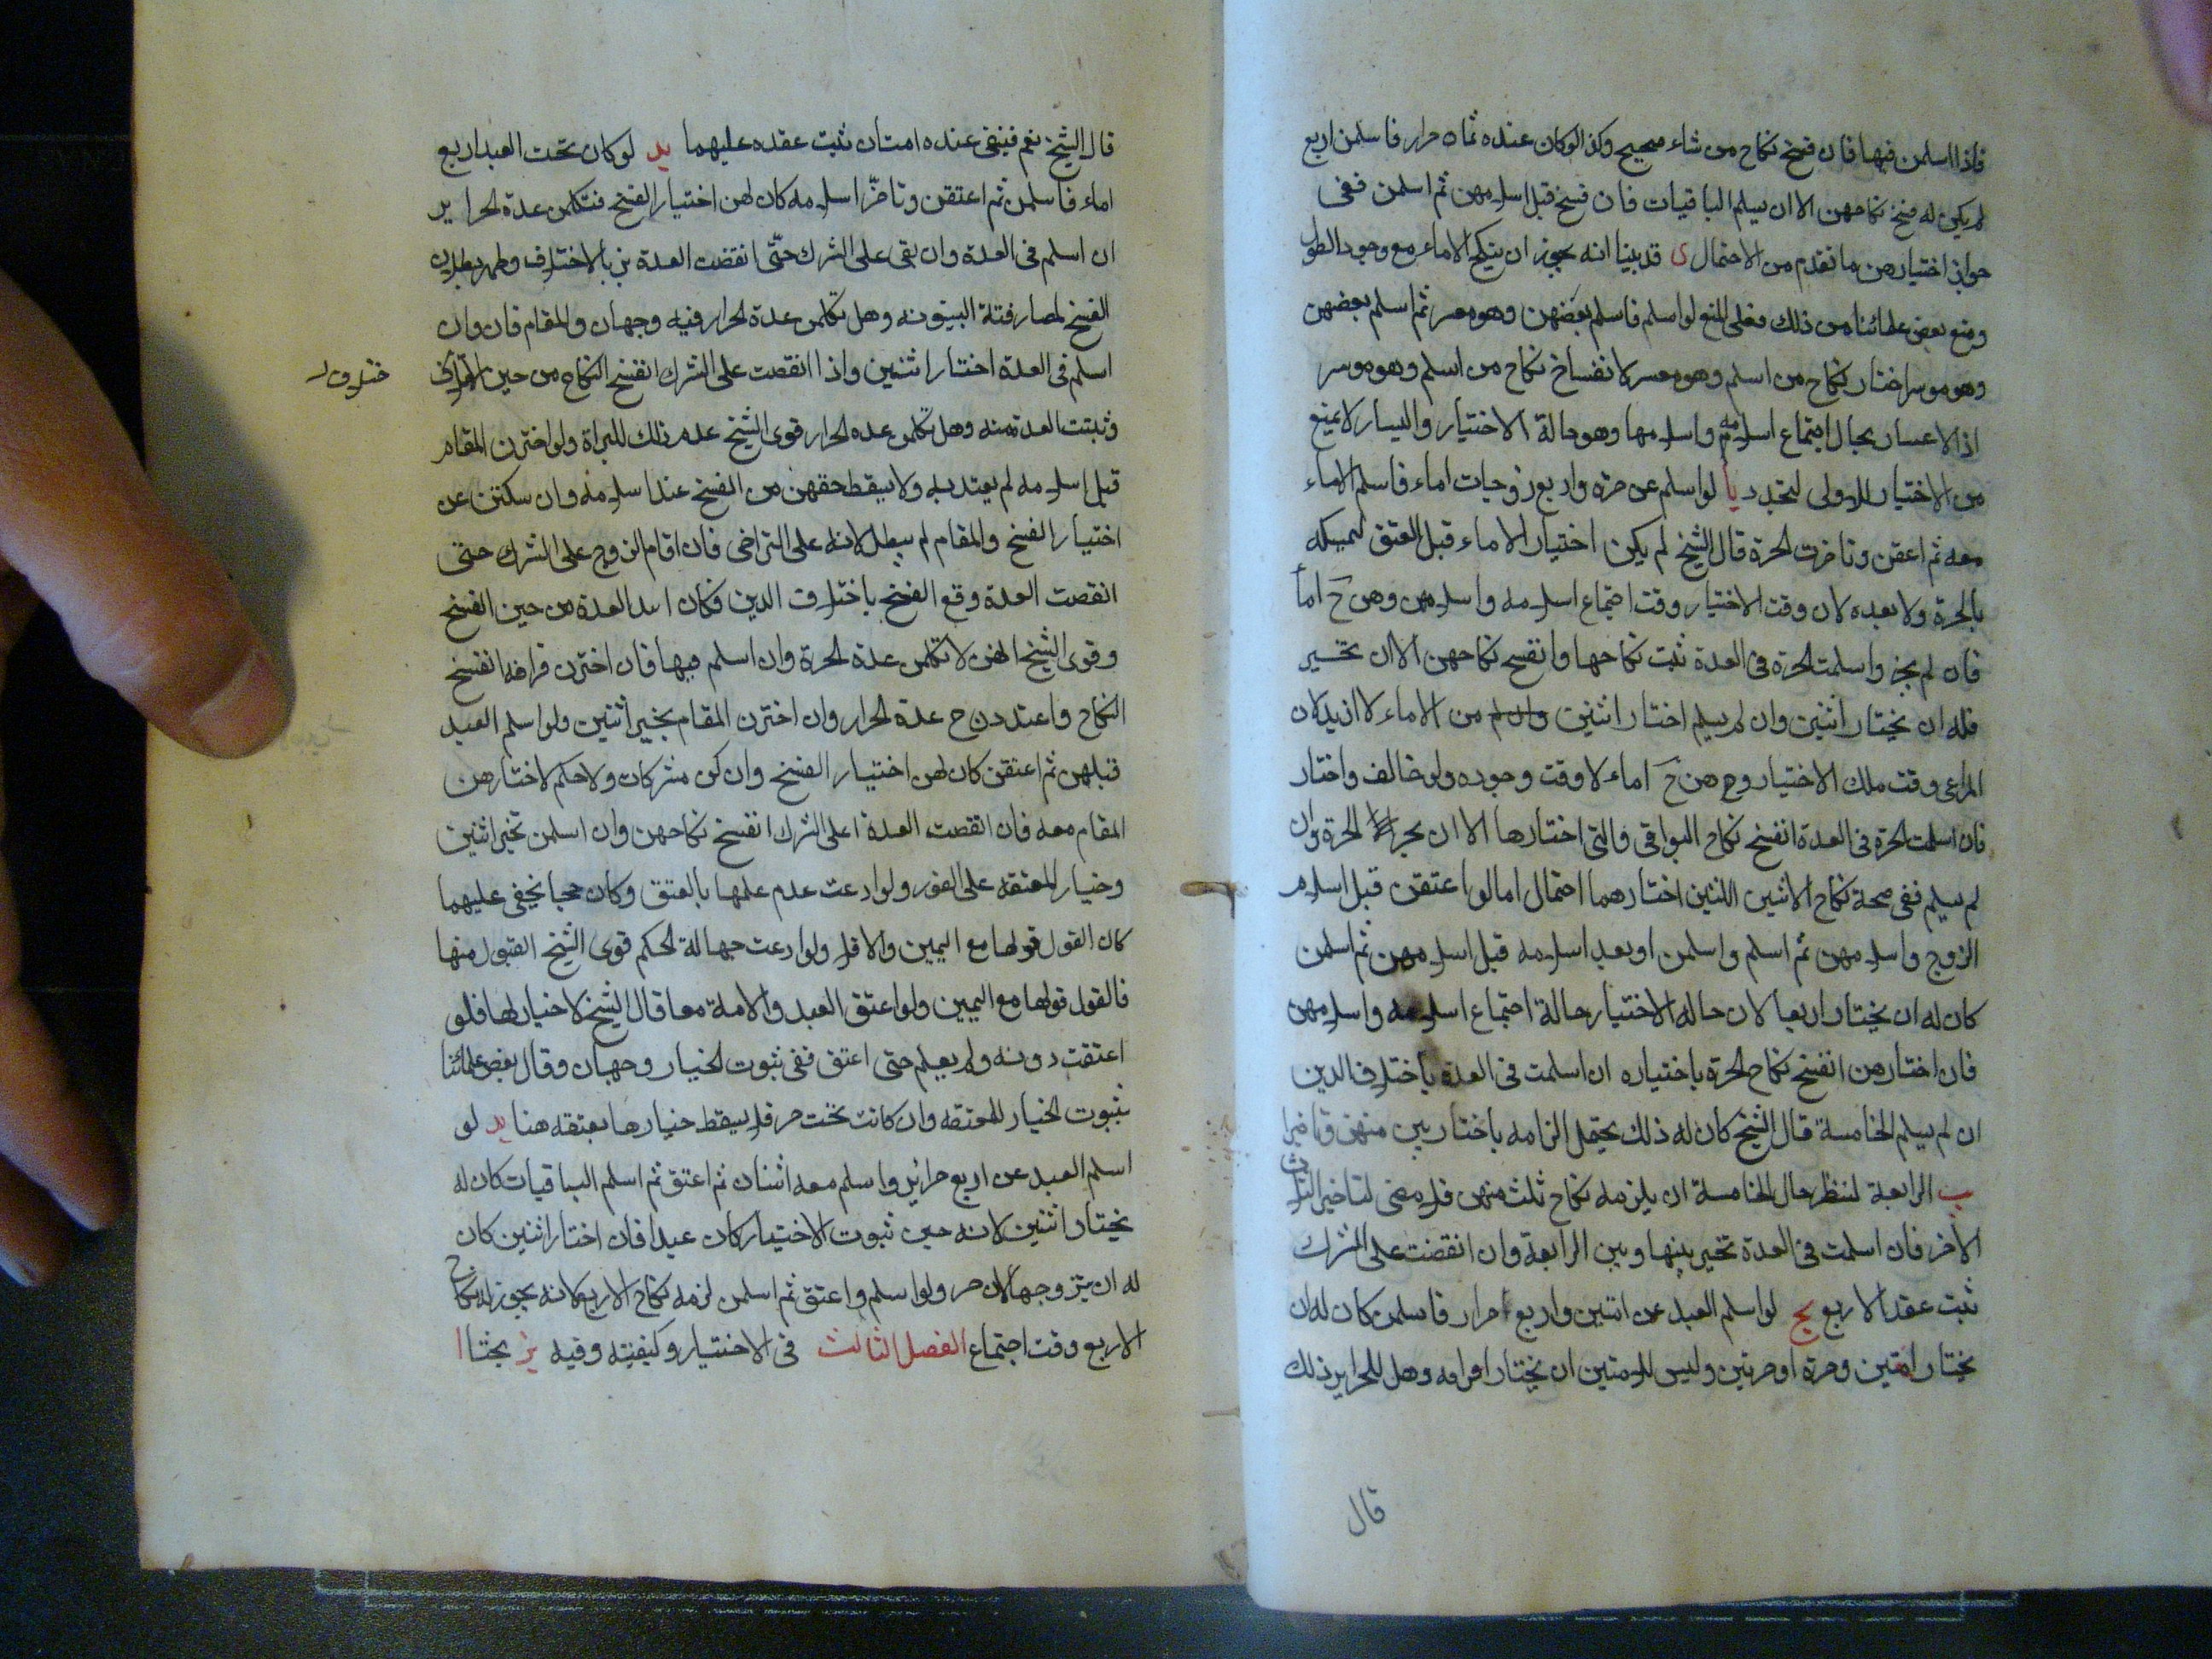 فاذا اسلمن فيها فان فسخ نكاح من شاء صحيح وكذا لوكان عنده ثمان حراير فاسلمن اربع
لم يكن له فسخ نكاحهن الا ان يسلم الباقيات فان فسخ قبل اسلامهن ثم اسلمن ففى
جواز اختيارهن ما تقدم من الاحتمال ى قد بينا انه يجوز ان ينكح الاماء مع وجود الطول
ومنع بعض علمائنا من ذلك فعلى المنع لو اسلم فاسلم بعضهن وهو معسر ثم اسلم بعضهن
وهو موسر اختار نكاح من اسلم وهو معسر لا نفساخ نكاح من اسلم وهو موسر
اذ الاعسار بحال اجتماع اسلامه واسلامها وهو حالة الاختيار واليسار لا يمنع
من الاختيار للاولى لتجدد يا لو اسلم عن حرة واربع زوجات اماء فاسلم الاماء
معه ثم اعتقن وتاخرت الحرة قال الشيخ لم يكن اختيار الاماء قبل العتق لتمسكه
بالحرة ولا بعده لان وقت الاختيار وقت اجتماع اسلامه واسلامهن وهن ح اما
فان لم يجز واسلمت الحرة فى العدة ثبت نكاحها وانفسخ نكاحهن الا ان تخير
فله ان يختار اثنتين وان لم يسلم اختار اثنتين من الاماء لا ازيد لان
المراعى وقت ملك الاختيار وح هن ح اماء لا وقت وجوده ولو خالف واختار
فان اسلمت الحرة فى العدة انفسخ نكاح البواقى والتى اختارها الا ان يجز الحرة وان
لم يسلم ففى صحة نكاح الاثنين اللتين اختارهما احتمال اما لو اعتقن قبل اسلام
الزوج واسلامهن ثم اسلم واسلمن او بعد اسلامه قبل اسلامهن ثم اسلمن
كان له ان يختار اربعا لان حاله الاختيار حالة اجتماع اسلامه واسلامهن
فان اختارهن انفسخ نكاح الحرة باختياره ان اسلمت فى العدة باختلاف الدين
ان لم يسلم الخامسة قال الشيخ كان له ذلك يحتمل الزامه باختار منهن وتاخير
يب الرابعة لننظر حال الخامسة ان يلزمه نكاح ثلث منهن فلا معنى لتاخير الثلاث
الاخر فان اسلمت فى العدة تخير بينها وبين الرابعة وان انقضت على الشرك
ثبت عقد الاربع يج لو اسلم العبد عن اثنين واربع احرار فاسلمن كان له ان
يختار امتين وحرة او حرتين وليس للامتين ان يختارا فراقه وهل للحراير ذلك
قال
قال الشيخ نعم فينفى عنده امتان ثبت عقده عليهما يد لو كان تحت العبد اربع
اماء فاسلمن ثم اعتقن وتاخر اسلامه كان لهن اختيار الفسخ فتكملن عدة الحراير
ان اسلم فى العدة وان بقى على الشرك حتى انقضت العدة بن بالاختلاف
الفسخ لمصارفته البينونه وهل تكملن عدة الحراير فيه وجهان والمقام فان وان
اسلم فى العدة اختار اثنتين واذا انقضت على الشرك انفسخ النكاح من حين
ختلاف
وثبتت العدة منه وهل تكملن عدة الحراير قوى الشيخ عدم ذلك للبراة ولو اخترن المقام
قبل اسلامه لم يعتد به ولا يسقط حقهن من الفسخ عند اسلامه وان سكتن عن
اختيار الفسخ والمقام لم يبطل لانه على التراخى فان اقام الزوج على الشرك حتى
انقضت العدة وقع الفسخ باختلاف الدين فكان ابتداء العدة من حين الفسخ
وقوى الشيخ انهن لا تكملن عدة الحرة وان اسلم فيها فان اخترن فراقه انفسخ
النكاح واعتددن ح عدة الحراير وان اخترن المقام يخير اثنتين ولو اسلم العبد
قبلهن ثم اعتقن كان لهن اختيار الفسخ وان كن مشركات ولا حكم لاختيارهن
المقام معه فان انقضت العدة على الشرك انفسخ نكاحهن وان اسلمن تخير اثنتين
وخيار المعتقه على الفور ولو ادعت عدم علمها بالعتق وكان مما يخفى عليهما
كان القول قولها مع اليمين والا فلا ولو ادعت جهالة الحكم قوى الشيخ القبول منها
فالقول قولها مع اليمين ولو اعتق العبد والامة معا قال الشيخ لا خيار لها فلو
اعتقت دونه ولم يعلم حتى اعتق ففى ثبوت الخيار وجهان وقال بعض علمائنا
بثبوت الخيار للمعتقه وان كانت تحت حر فلا يسقط خيارها بعتقه هنا يد لو
اسلم العبد عن اربع حراير واسلم معه اثنان ثم اعتق ثم اسلم الباقيات كان له
يختار اثنتين لانه حين ثبوت الاختيار كان عبدا فان اختار اثنتين كان
له ان يتزوجها لان حر ولو اسلم واعتق ثم اسلمن لزمه نكاح الاربع لانه يجوز له نكاح
الاربع وقت اجتماع الفصل الثالث فى الاختيار وكيفيته وفيه